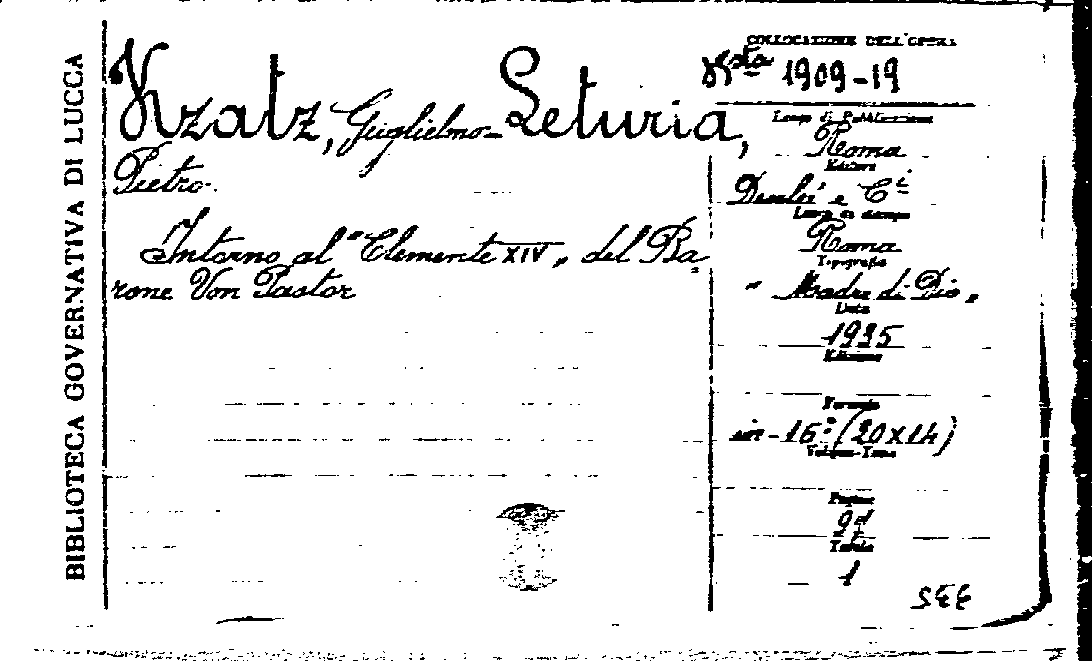 BIBLIOTECA GOVERNATIVA DI LUCCA
Kzatz, Guglielmo - Leturia,
Pietro.
Intorno al "Clemente XIV" del Ba=
rone Von Pastor
COLLOCAZIONE DELL'OPERA
Bsta 1909-19
Luogo di Pubblicazione
Roma
Editore
Desclée e Ci
Luogo di stampa
Roma
Tipografia
"Madre di Dio"
Data
1935
Edizione
Formato
in-16° (20x14)
Volume-Tomo
Pagine
Tavole
1